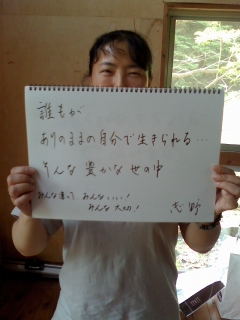 誰もが
ありのままの自分で生きられる…
そんな豊かな世の中
みんな違って みんないい!
みんな大切!
志野